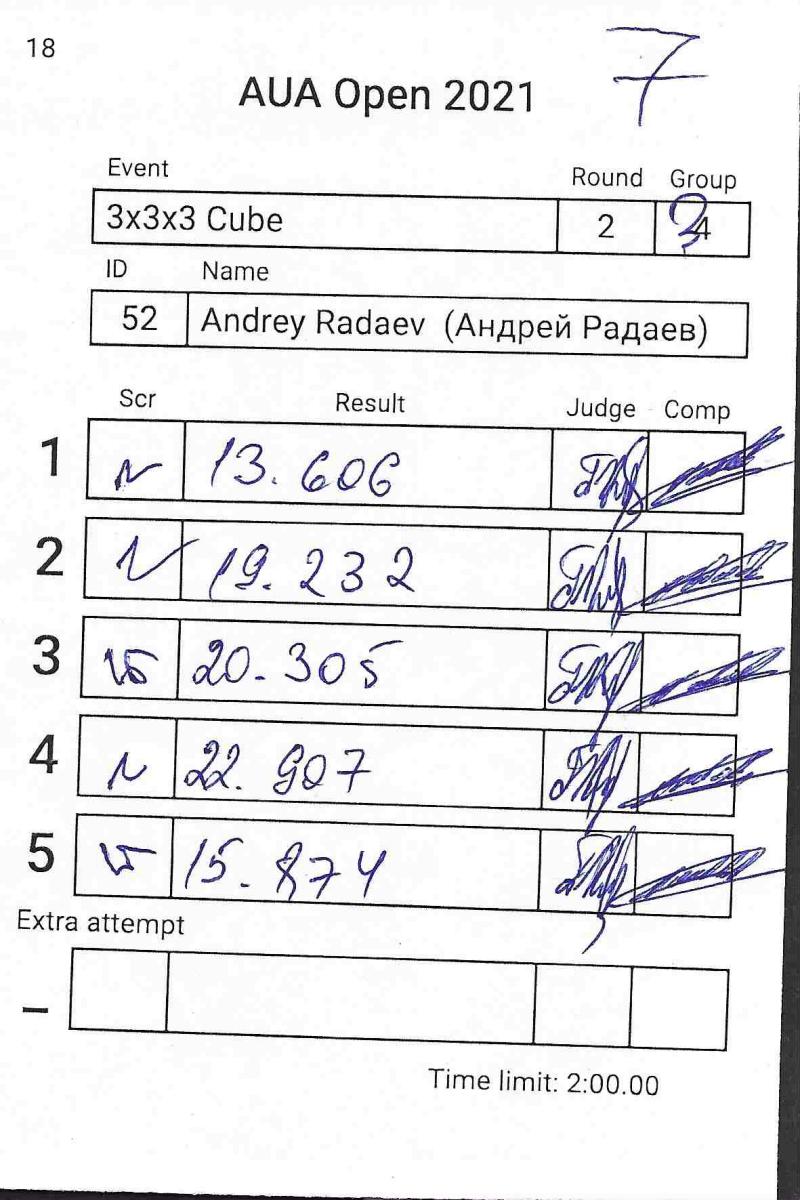 18
7
AUA Open 2021
Event Round Group
3x3x3 Cube 2 3
ID Name
52 Andrey Radaev (Андрей Радаев)
Scr Result Judge Comp
1 13.606
2 19.232
3 20.305
4 22.907
5 15.874
Extra attempt
–
Time limit: 2:00.00